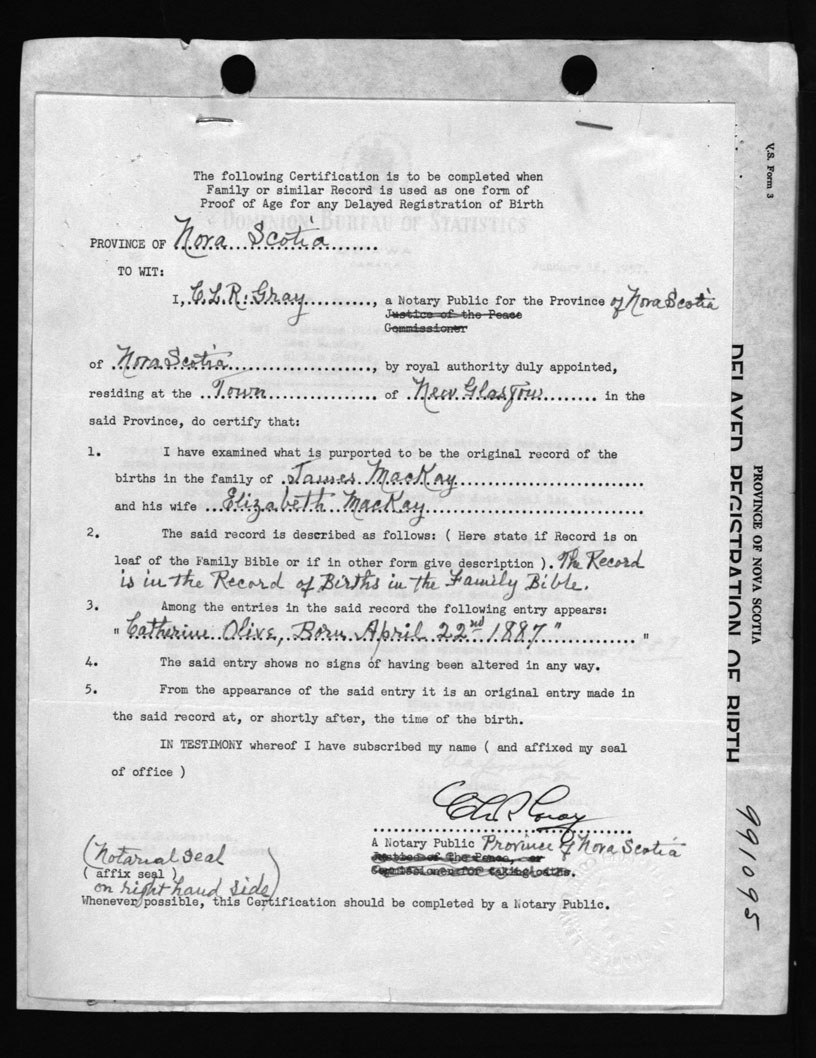 The following Certification is to be completed when
Family or similar Record is used as one form of
Proof of Age for any Delayed Registration of Birth
DOMINION BUREAU OF STATISTICS
PROVINCE OF Nova Scotia
TO WIT:
I, C.L.R. Gray, a Notary Public for the Province of Nova Scotia
Justice of the Peace
Commissioner
of Nova Scotia, by royal authority duly appointed,
residing at the Town of New Glasgow in the
said Province, do certify that:
1. I have examined what is purported to be the original record of the
births in the family of James MacKay
and his wife Elizabeth MacKay
2. The said record is described as follows: ( Here state if Record is on
leaf of the Family Bible or if in other form give description ). The Record
is in the Record of Births in the Family Bible.
3. Among the entries in the said record the following entry appears:
" Catherine Olive, Born April 22nd 1887 " "
4. The said entry shows no signs of having been altered in any way.
5. From the appearance of the said entry it is an original entry made in
the said record at, or shortly after, the time of the birth.
IN TESTIMONY whereof I have subscribed my name ( and affixed my seal
of office )
C L R Gray
A Notary Public Province of Nova Scotia
Justice of The Peace, or
Commissioner for taking oaths.
(Notarial Seal
( affix seal )
on right hand side)
Whenever possible, this Certification should be completed by a Notary Public.
V.S. Form 3
PROVINCE OF NOVA SCOTIA
DELAYED REGISTRATION OF BIRTH
991095